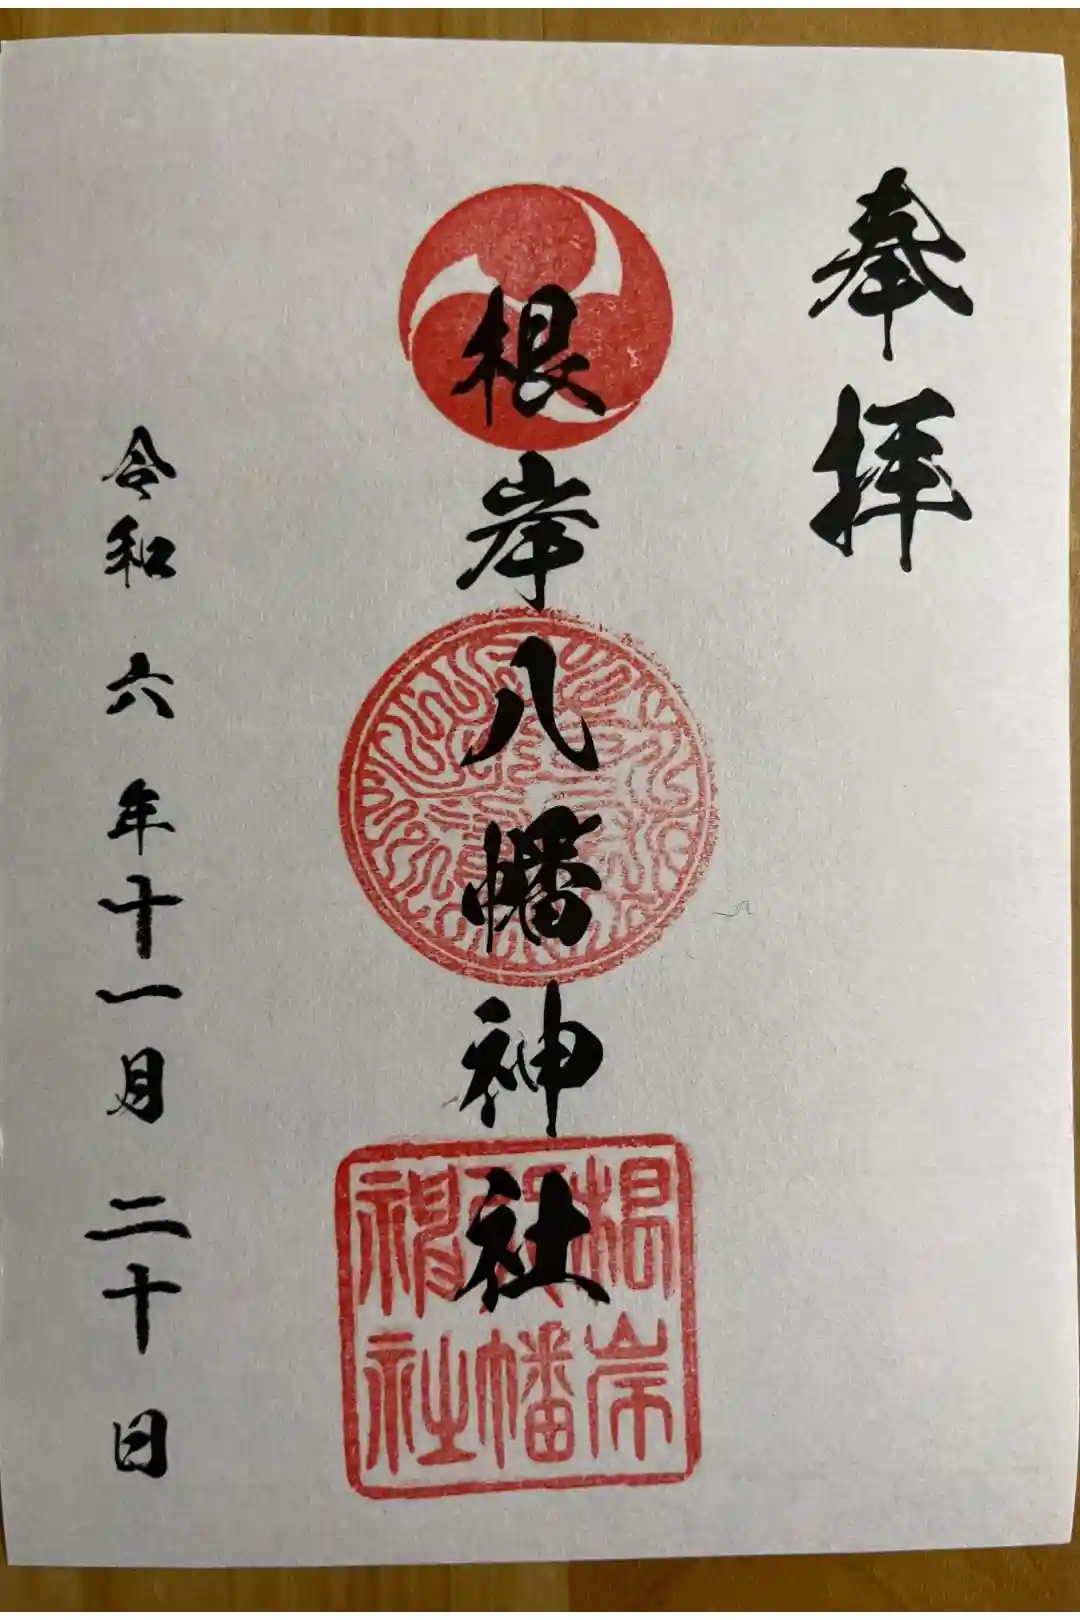 奉拝
根岸八幡神社
根岸
八幡
神社
令和六年十一月二十日